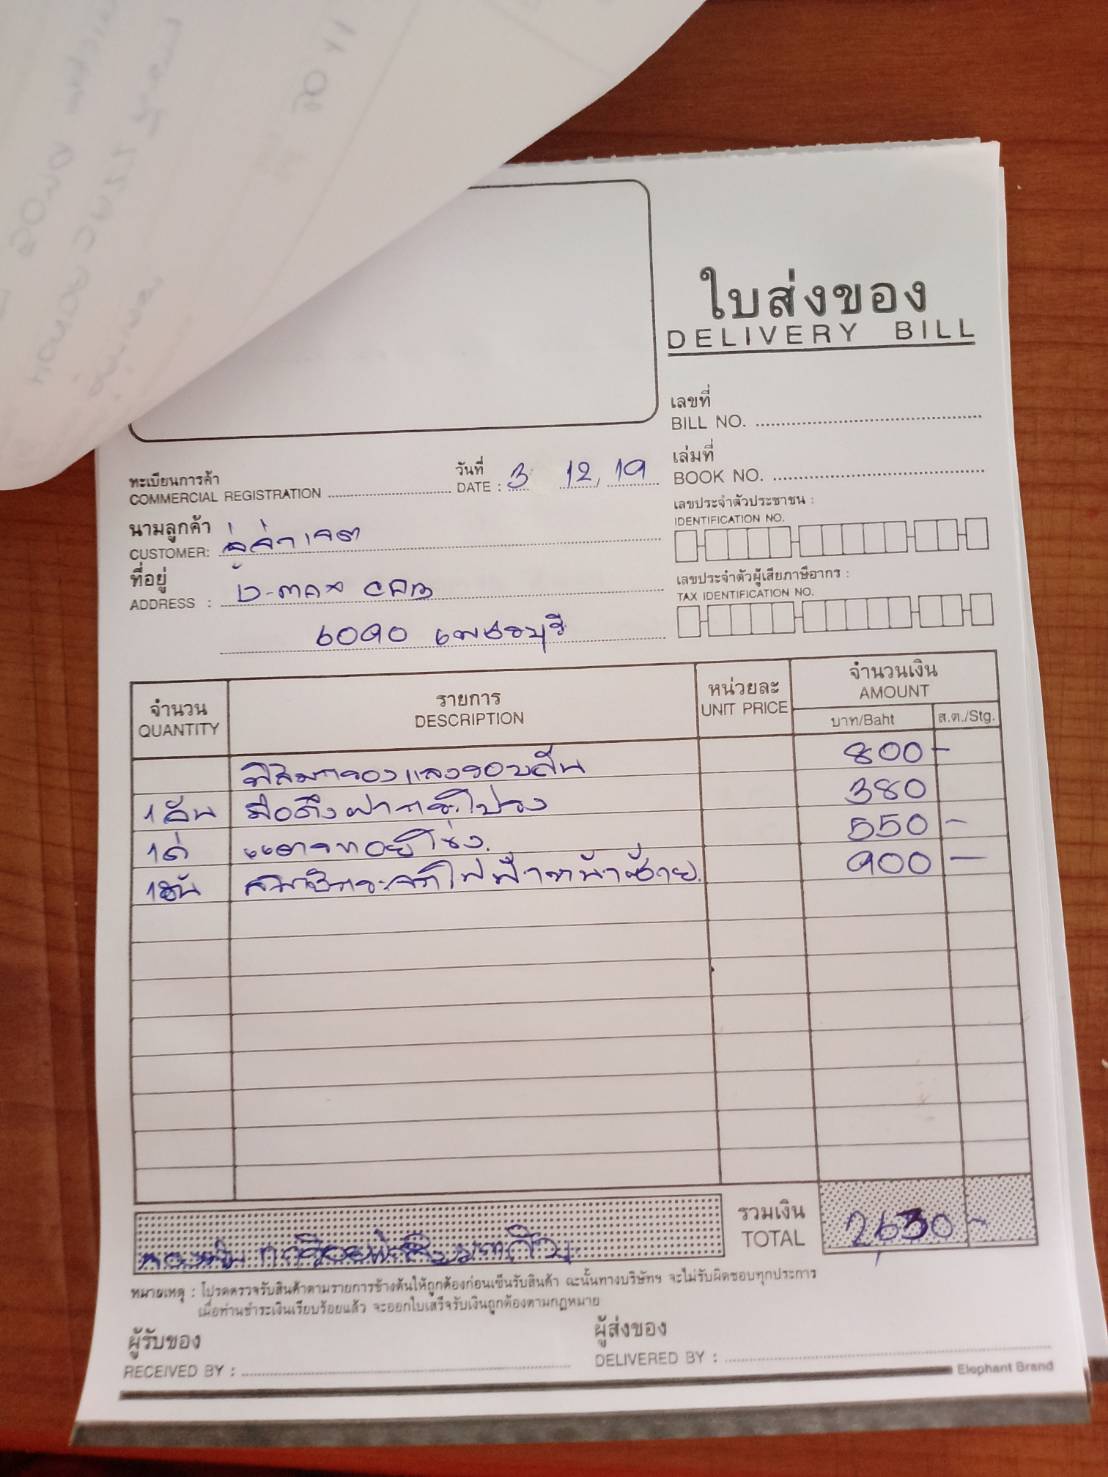 ใบส่งของ
DELIVERY BILL
เลขที่
BILL NO.
เล่มที่
BOOK NO.
ทะเบียนการค้า
COMMERCIAL REGISTRATION
วันที่
DATE : 3 12, 19
เลขประจำตัวประชาชน :
IDENTIFICATION NO.
นามลูกค้า
CUSTOMER:
ที่อยู่
ADDRESS : D-max
6090 เพชรบุรี
เลขประจำตัวผู้เสียภาษีอากร :
TAX IDENTIFICATION NO.
จำนวน รายการ หน่วยละ จำนวนเงิน
QUANTITY DESCRIPTION UNIT PRICE AMOUNT
บาท/Baht ส.ต./Stg.
ฟิล์มกรองแสงรอบคัน 800 -
1 อัน มือดึงฝากระโปรง 380
1 550 -
1 อัน กระจกไฟฟ้าหน้าซ้าย 900 -
รวมเงิน
TOTAL 2,630 -
หมายเหตุ : โปรดตรวจรับสินค้าตามรายการข้างต้นให้ถูกต้องก่อนเซ็นรับสินค้า ฉะนั้นทางบริษัทฯ จะไม่รับผิดชอบทุกประการ
เมื่อท่านชำระเงินเรียบร้อยแล้ว จะออกใบเสร็จรับเงินถูกต้องตามกฎหมาย
ผู้รับของ ผู้ส่งของ
RECEIVED BY : DELIVERED BY :
Elephant Brand